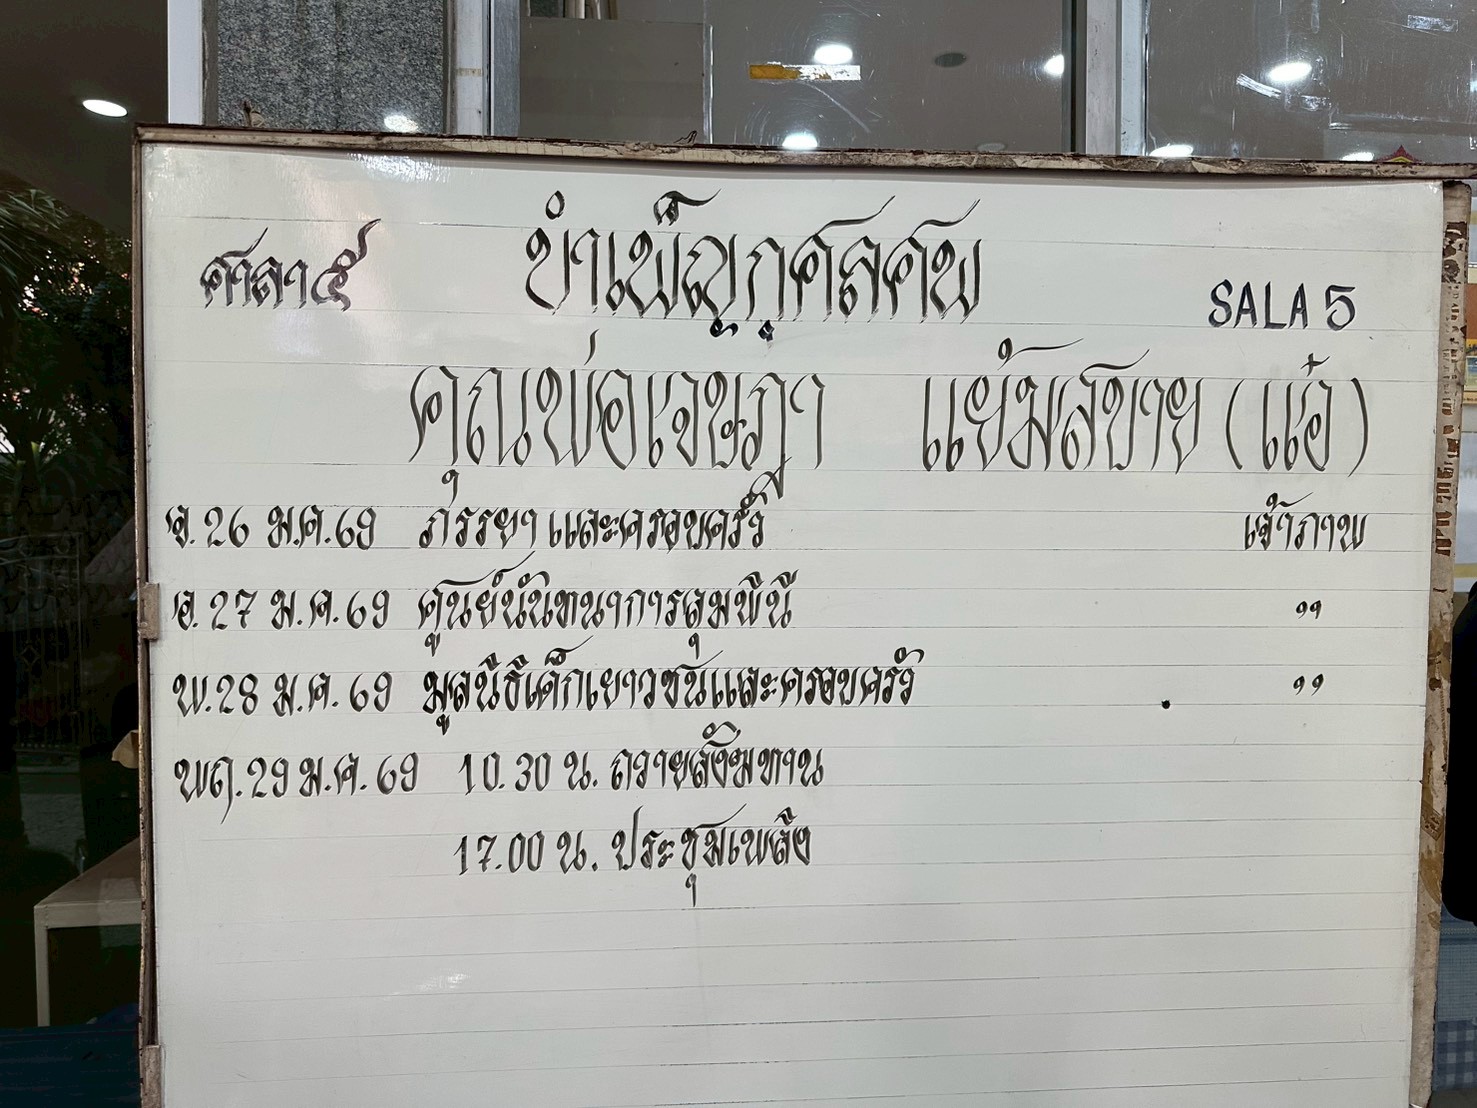 ศาลา๕ บำเพ็ญกุศลศพ SALA 5
คุณพ่อเจษฎา แย้มสบาย (แอ๋)
จ. 26 ม.ค. 69 ภรรยา และครอบครัว เจ้าภาพ
อ. 27 ม.ค. 69 ศูนย์นันทนาการลุมพินี ,,
พ. 28 ม.ค. 69 มูลนิธิเด็กเยาวชนและครอบครัว ,,
พฤ. 29 ม.ค. 69 10.30 น. ถวายสังฆทาน
17.00 น. ประชุมเพลิง